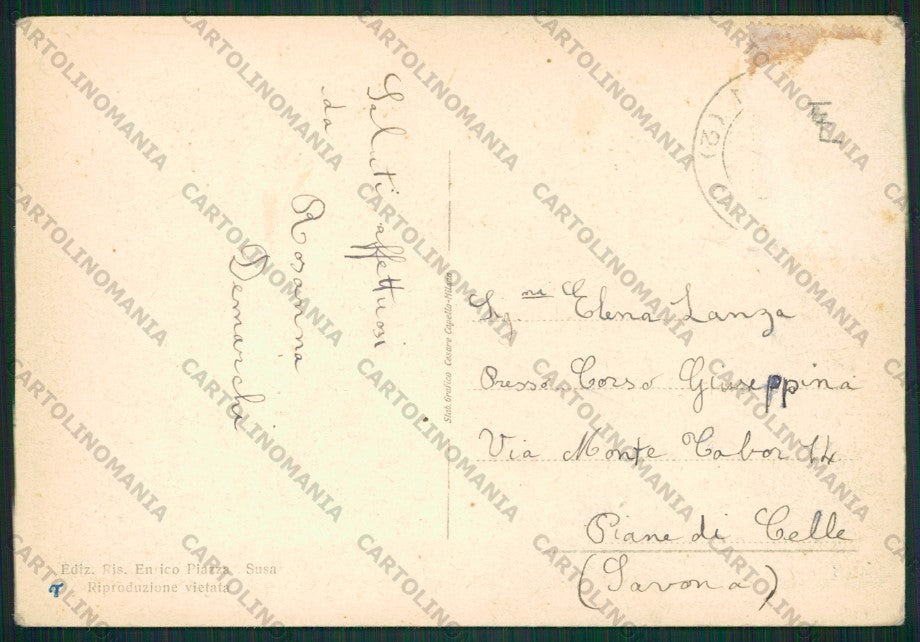 Saluti affettuosi
da
Rosanna
Demarchi
Stab. Grafico Cesare Capello - Milano
Sig.na Elena Lanza
Presso Corso Giuseppina
Via Monte Tabor 14
Piane di Celle
(Savona)
Ediz. Ris. Enrico Piazza Susa
Riproduzione vietata
(2)
CARTOLINOMANIA